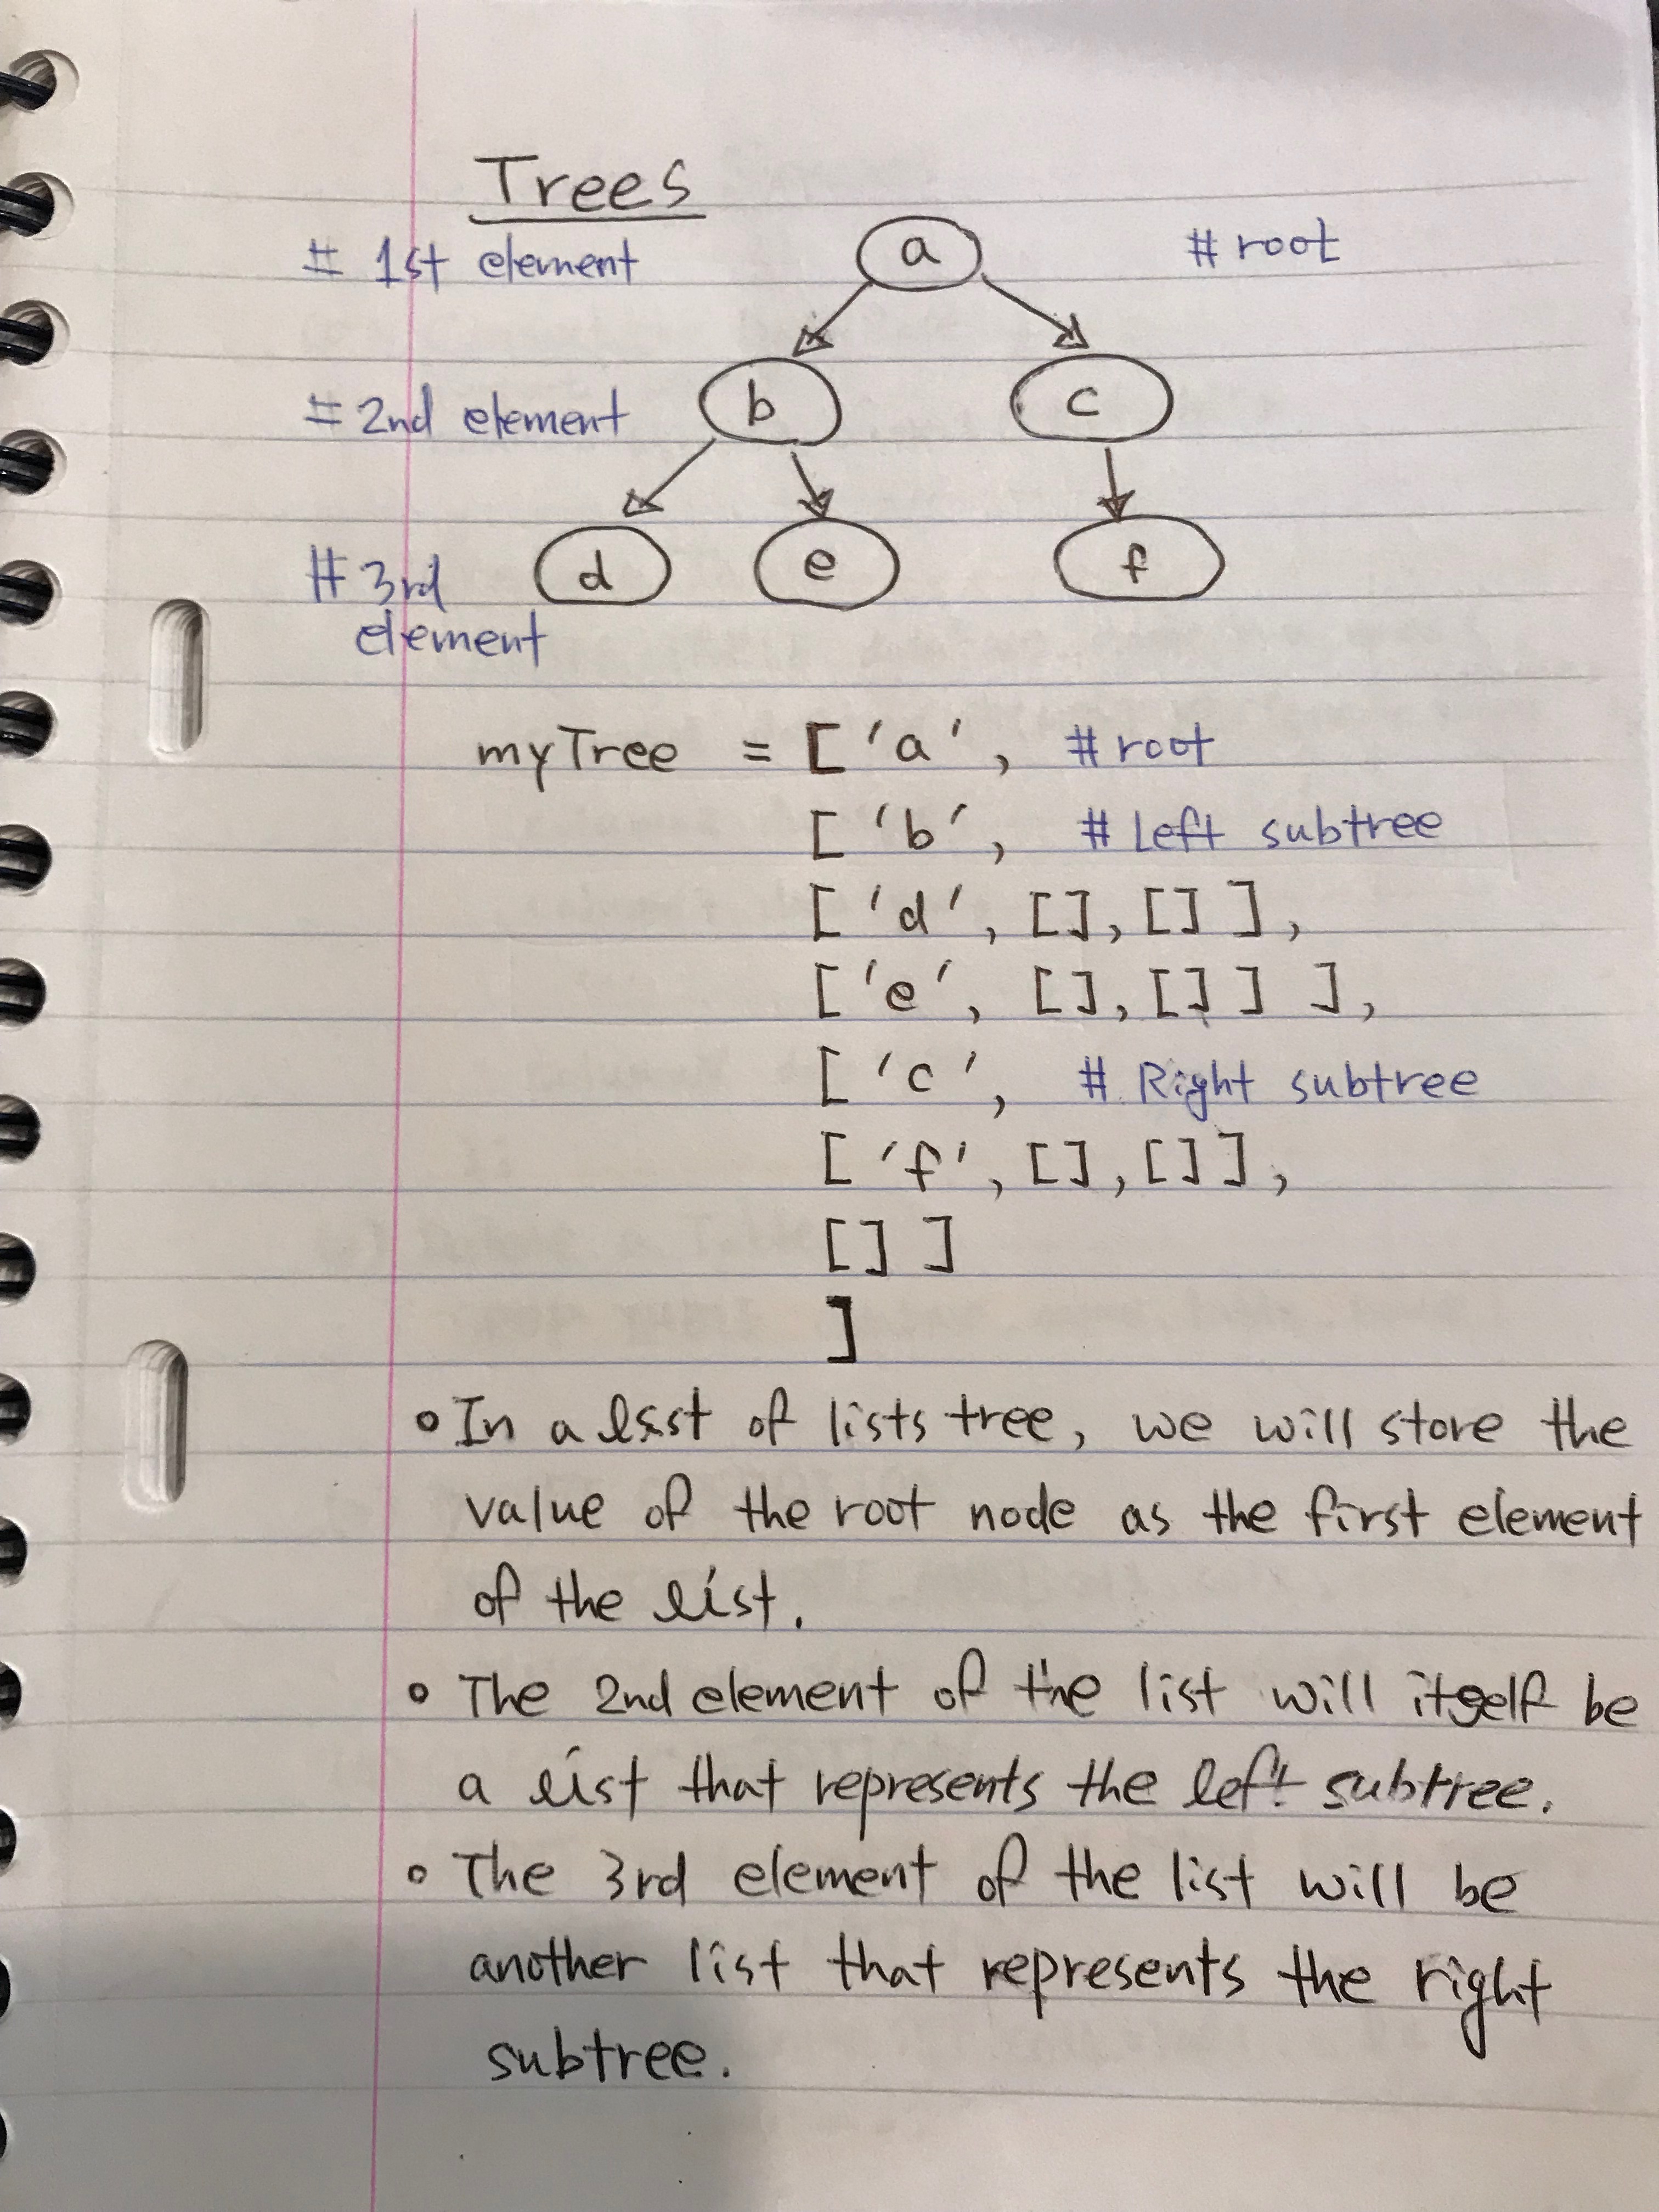 Trees
# 1st element a # root
# 2nd element b c
# 3rd d e f
element
myTree = ['a', # root
['b', # Left subtree
['d', [], [] ],
['e', [], [] ] ],
['c', # Right subtree
['f', [], [] ],
[] ]
]
• In a list of lists tree, we will store the
value of the root node as the first element
of the list.
• The 2nd element of the list will itself be
a list that represents the left subtree.
• The 3rd element of the list will be
another list that represents the right
subtree.